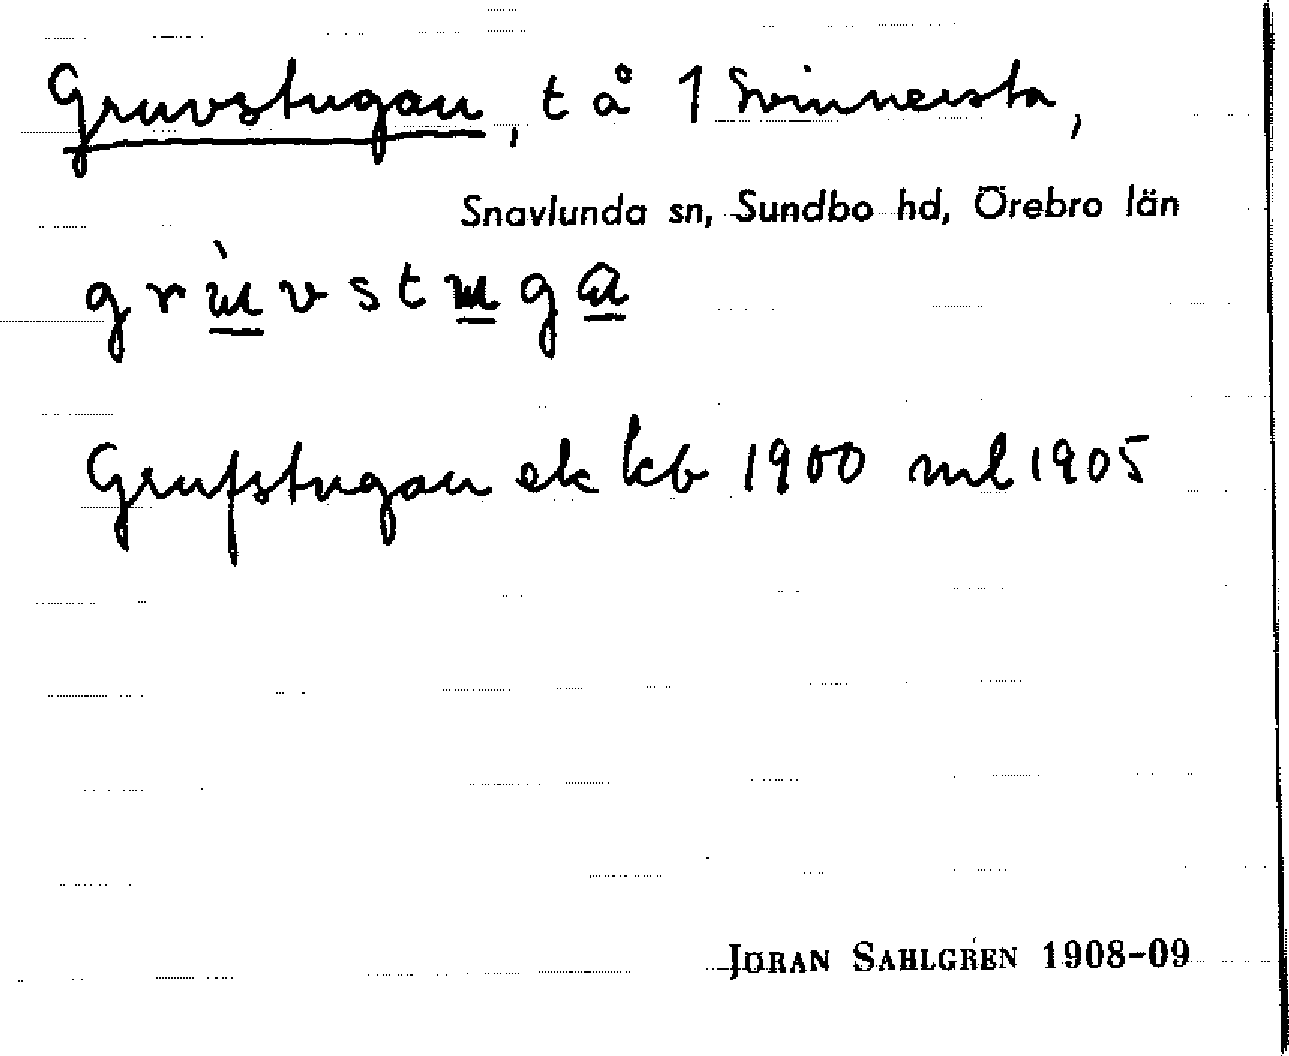 Gruvstugan, t å 1 Svinnersta,
Snavlunda sn, Sundbo hd, Örebro län
Grufstugan ek kb 1900 ml 1905
JÖRAN SAHLGREN 1908-09